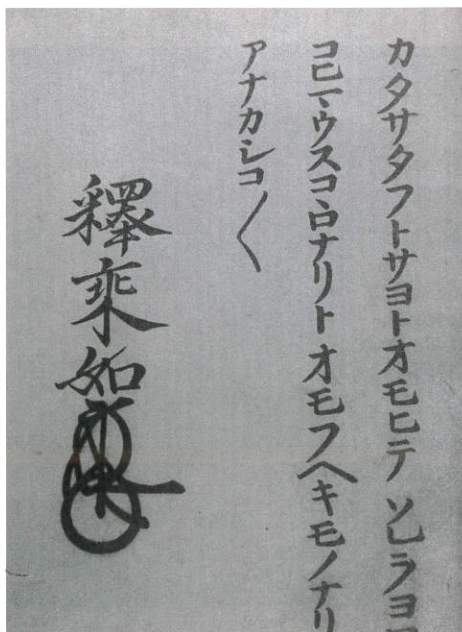 カタサタフトサヨトオモヒテソレヲヨ
コヒマウスコヽロナリトオモフヘキモノナリ
アナカシコ〱
釋乘如